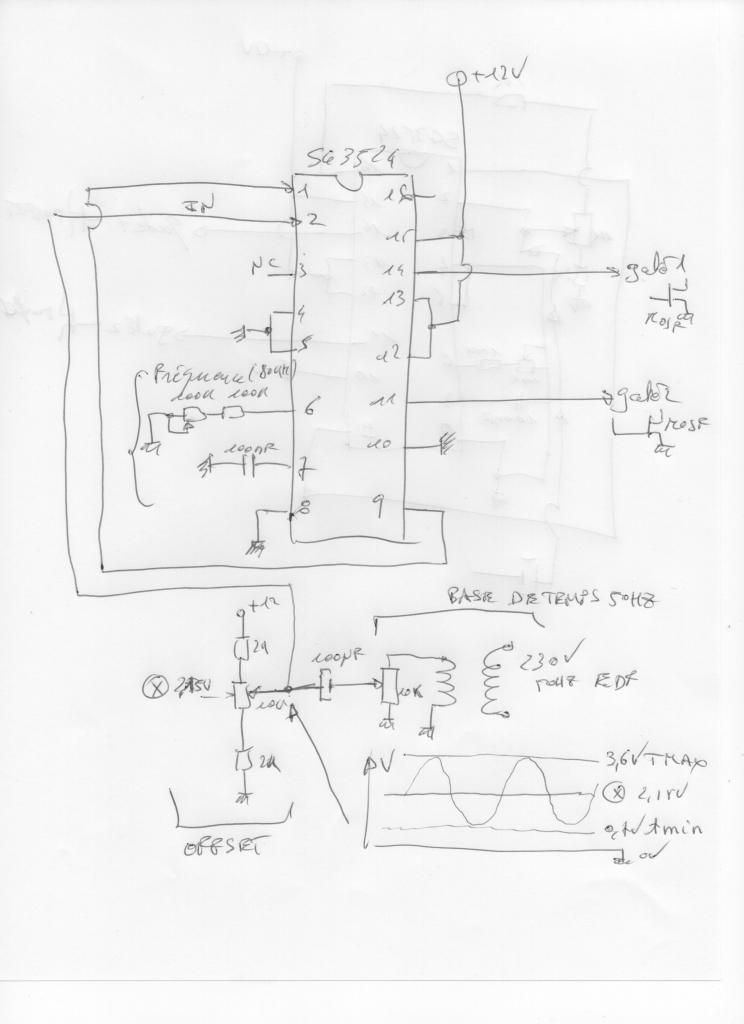 +12V
SG3524
1
16
IN
2
15
NC
3
14
gate1
13
MOSF
4
5
12
Fréquence (80Hz)
100K 100K
6
11
gate2
MOSF
10
100nF
7
8
9
BASE DE TEMPS 50HZ
+12
2K
100µF
230V
50HZ EDF
X 2,15V
10K
10K
A
2K
ΔV
3,6V T MAX
X 2,15V
T min
0V
OFFSET